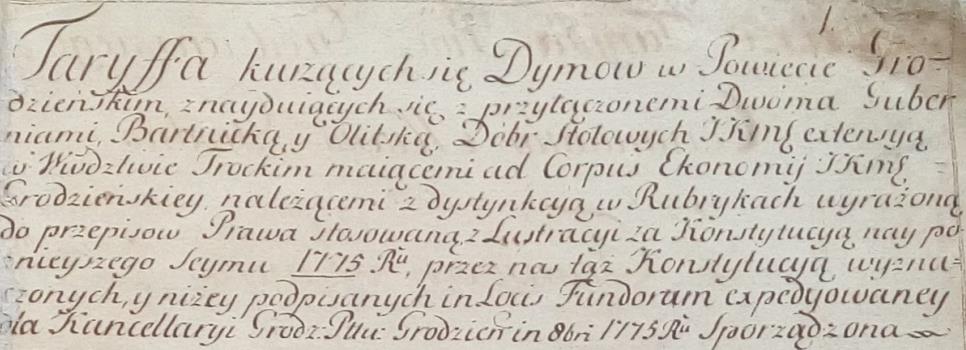 1.
Taryffa kurzących się Dymow w Powiecie Gro-
dzieńskim, znayduiących się z przyłączonemi Dwoma Guber
niami, Bartnicką y Olitską, Dobr Stołowych JKmś extensyą
w Wwdztwie Trockim maiącemi ad Corpus Ekonomij JKmś =
Grodzieńskiey, należącemi z dystynkcyą w Rubrykach wyrażoną
do przepisow Prawa stosowaną, z Lustracyi za Konstytucyą nay po
znieyszego Seymu 1775 Ru, przez nas tąż Konstytucyą wyzna=
czonych, y niżey podpisanych in Locis Fundorum expedyowaney
dla Kancellaryi Grodz: Pttu: Grodzień in 8bri 1775 Ru Sporządzona